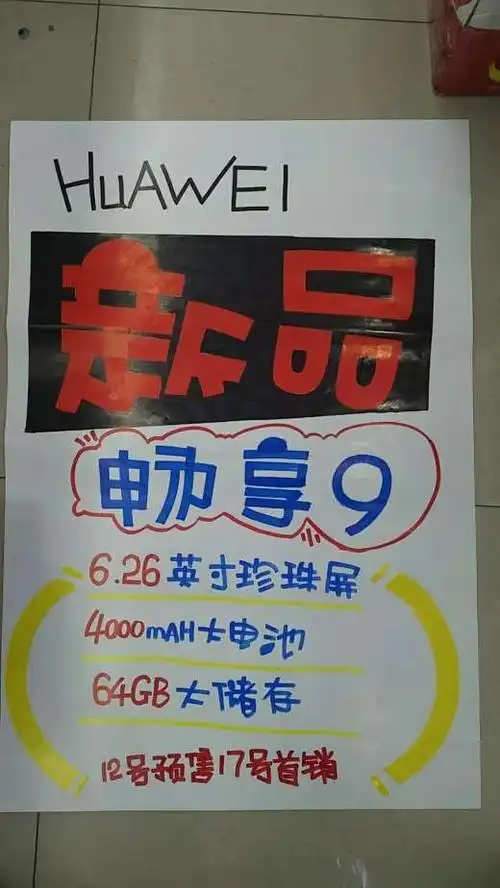 HUAWEI
新品
畅享9
6.26英寸珍珠屏
4000mAH大电池
64GB大储存
12号预售17号首销